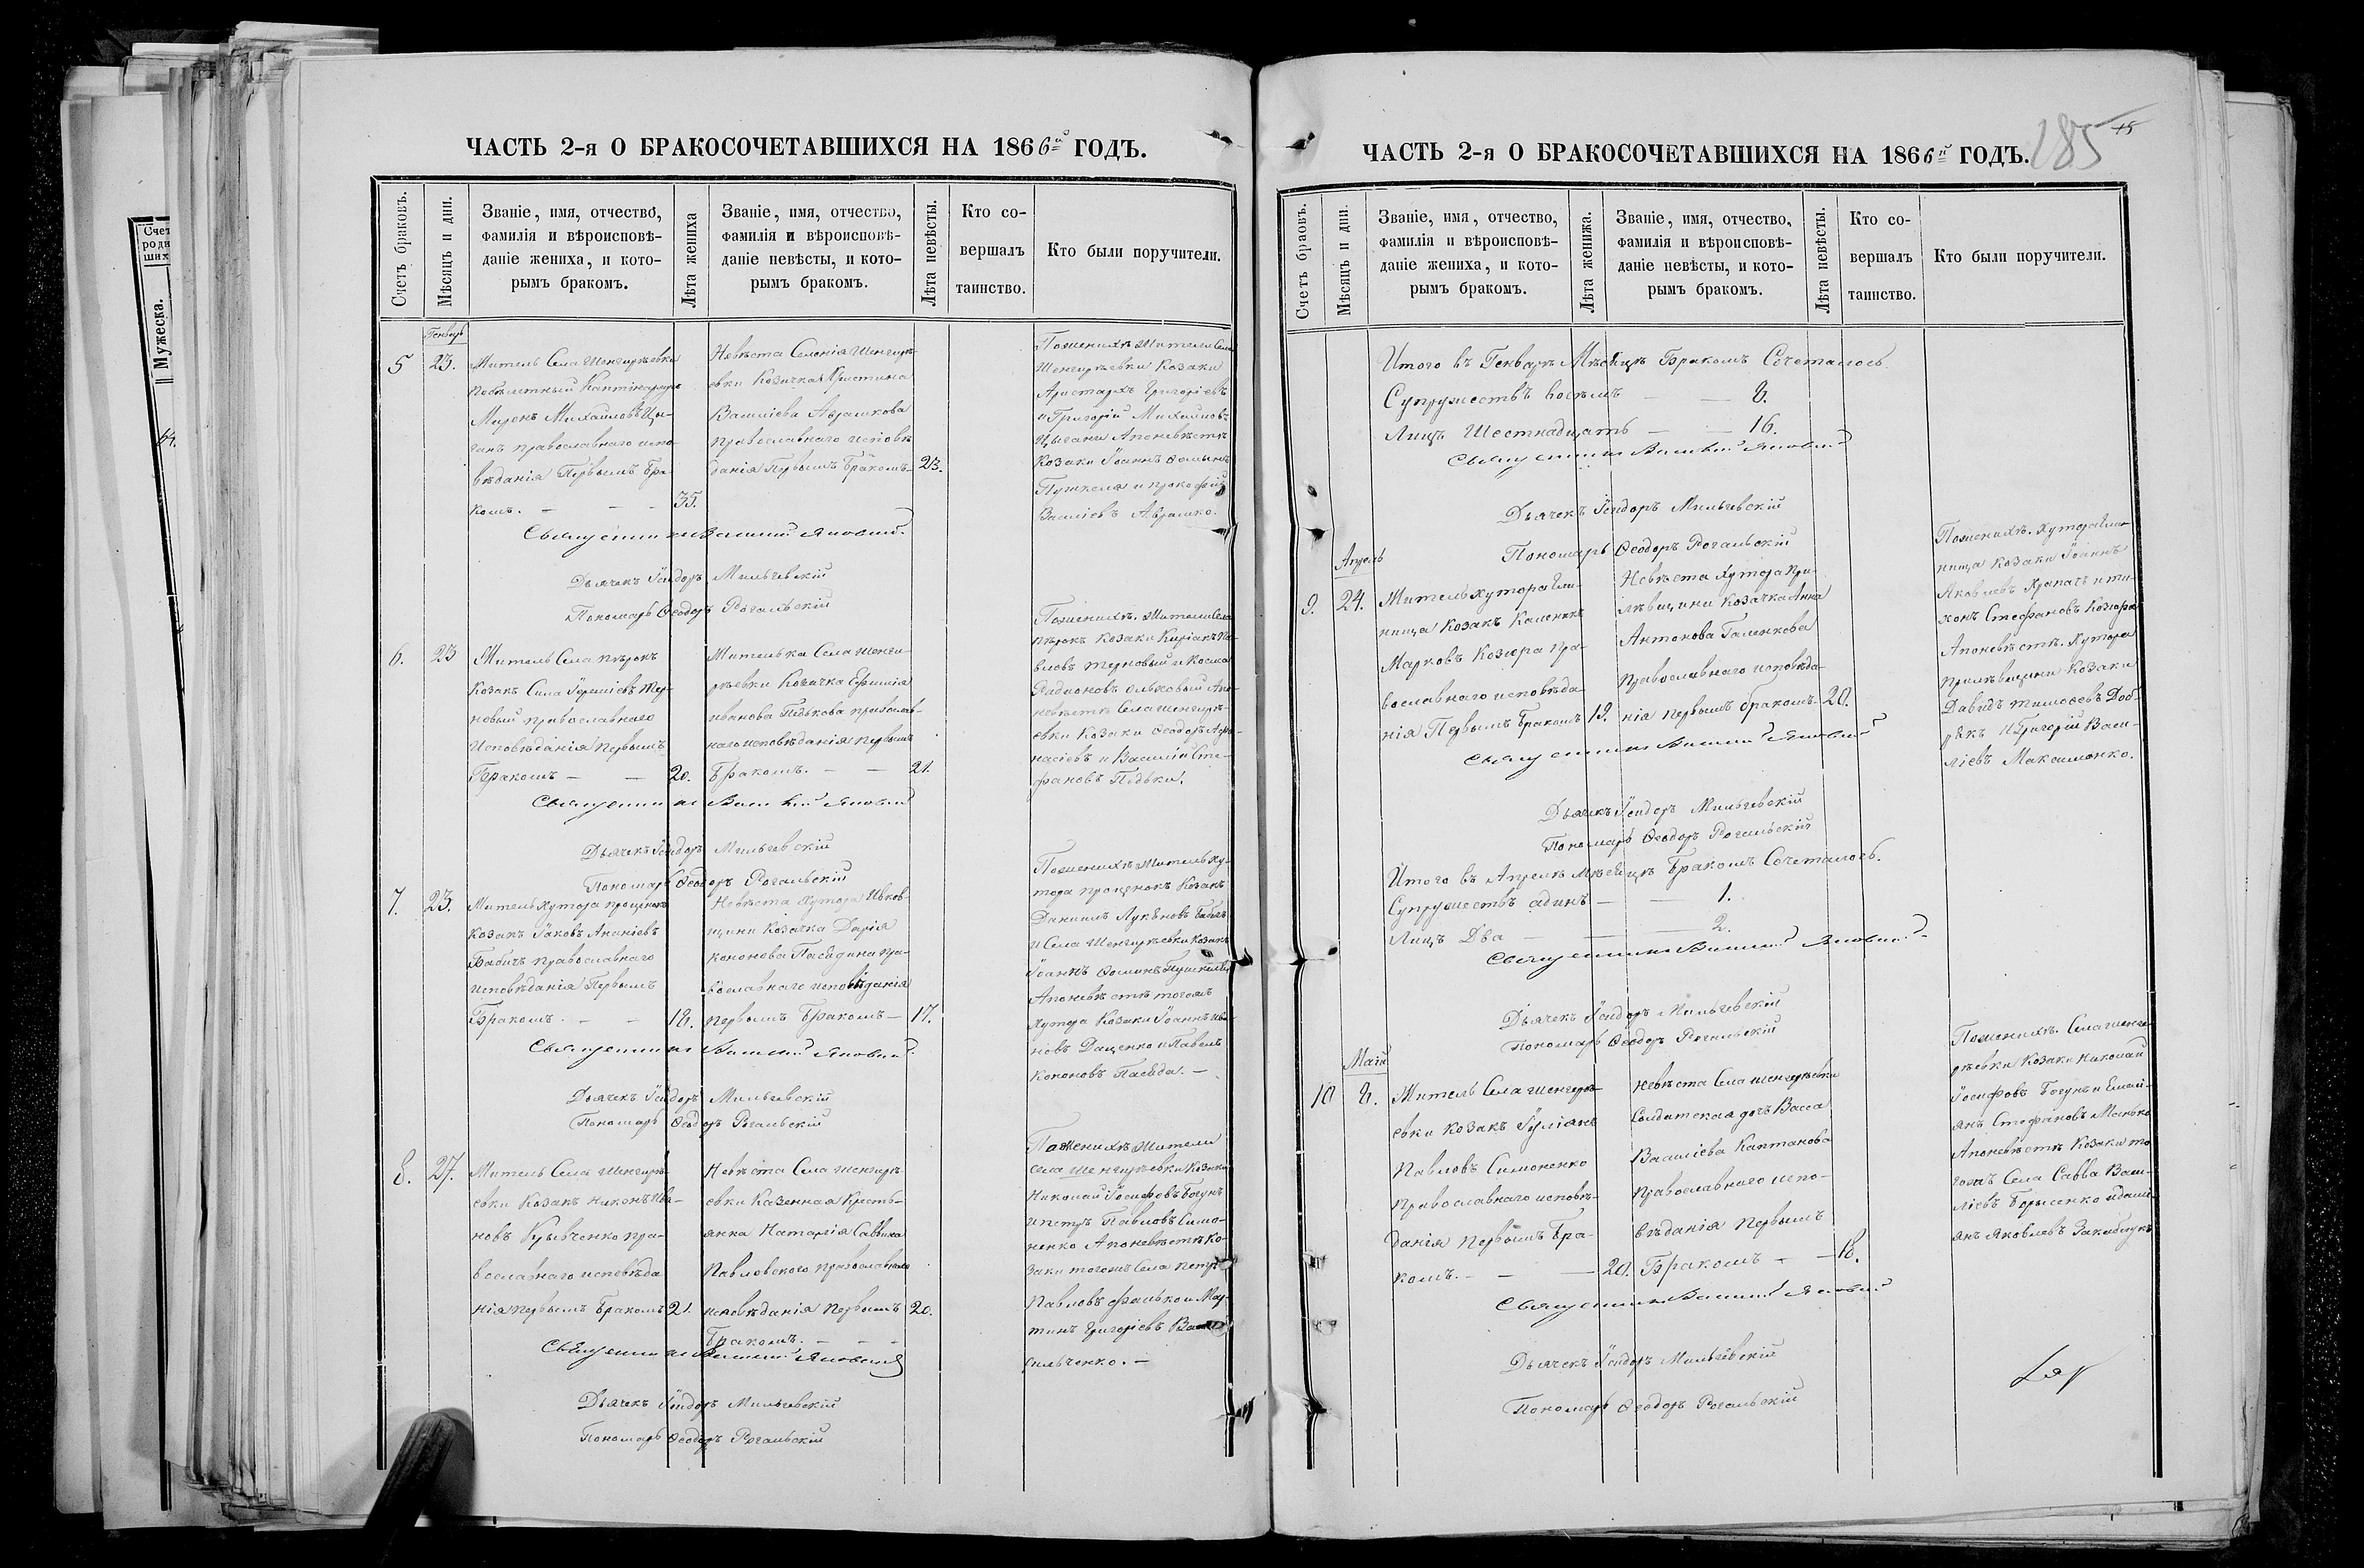 ЧАСТЬ 2-я О БРАКОСОЧЕТАВШИХСЯ НА 1866й ГОДЪ.
Счетъ браковъ.
Мѣсяцъ и дни.
Званіе, имя, отчество,
фамилія и вѣроисповѣ-
даніе жениха, и кото-
рымъ бракомъ.
Лѣта жениха
Званіе, имя, отчество,
фамилія и вѣроисповѣ-
даніе невѣсты, и кото-
рымъ бракомъ.
Лѣта невѣсты.
Кто со-
вершалъ
таинство.
Кто были поручители.
Генварь
5
23.
Житель Села Шенгурѣевки
Мѵронъ Михайловъ Цы-
ганъ православнаго испо-
вѣданія Первымъ Бра-
комъ.
35.
Невѣста Селенія Шенгурѣ-
евки Козачка Христина
Василіева Аврашкова
православнаго исповѣ
данія Первымъ Бракомъ
23.
По женихѣ Жители Села
Шенгурѣевки Козаки
Аристархъ Григоріевъ
и Григорій Михайловъ
Цыгани А по невѣстѣ
Козаки Іоаннъ Ѳоминъ
Пушкеля и Прокофій
Василіевъ Аврашко.
Священникъ Василій Яновскій
Дьячекъ Ісидоръ Мильчевскій
Пономарь Ѳеодоръ Рогальскій
6.
23
Житель Села Пѣрокъ
Козакъ Сила Іереміевъ Тер-
новый православнаго
Исповѣданія Первымъ
Бракомъ
20.
Жителька Села Шенгу-
рѣевки Козачка Евфимія
Иванова Педькова православ-
наго исповѣданія первымъ
Бракомъ.
21.
По женихѣ. Жители Села
Пѣрокъ Козаки Киріакъ Па-
вловъ Терновый и Косма
Радіоновъ Ольховый А по
невѣстѣ Села Шенгурѣ-
евки Козаки Ѳеодоръ Аѳа-
насіевъ и Василій Сте-
фановъ Педьки.
Священникъ Василій Яновскій
Дьячекъ Ісидоръ Мильчевскій
Пономарь Ѳеодоръ Рогальскій
7.
23.
Житель Хутора Проценокъ
Козакъ Іаковъ Ананіевъ
Бабичъ православнаго
исповѣданія Первымъ
Бракомъ.
18.
Невѣста Хутора Ивков-
щини Козачка Дарія
Кононова Пасѣдина пра-
вославнаго исповѣданія
первымъ Бракомъ
17.
По женихѣ Житель Ху-
тора Проценокъ Козакъ
Даніилъ Лукіяновъ Бабичъ
и Села Шенгурѣевки Козакъ
Іоаннъ Ѳоминъ Пушкеля
А по невѣстѣ тогожъ
Хутора Козаки Іоаннъ Ива-
новъ Даценко и Павелъ
Кононовъ Пасѣда.
Священникъ Василій Яновскій
Дьячекъ Ісидоръ Мильчевскій
Пономарь Ѳеодоръ Рогальскій
8.
27.
Житель Села Шенгурѣ-
евки Козакъ Никонъ Ива-
новъ Кривченко пра-
вославнаго исповѣда
нія первымъ Бракомъ
21.
Невѣста Села Шенгурѣ-
евки Казенная Кресть-
янка Наталія Саввина
Павловского православнаго
исповѣданія Первымъ
Бракомъ.
20.
По женихѣ Жители
села Шенгурѣевки Козаки
Николай Іосифовъ Богунъ
и Петръ Павловъ Симо-
ненко А по невѣстѣ Ко-
заки тогожъ Села Петръ
Павловъ Фалько и Мар-
тинъ Григоріевъ Ва
сильченко.
Священникъ Василій Яновскій
Дьячекъ Ісидоръ Мильчевскій
Пономарь Ѳеодоръ Рогальскій
Счет
роди
ших
Мужеска.
ЧАСТЬ 2-я О БРАКОСОЧЕТАВШИХСЯ НА 1866й ГОДЪ.
285
Счетъ браовъ.
Мѣсяцъ и дни.
Званіе, имя, отчество,
фамилія и вѣроисповѣ-
даніе жениха, и кото-
рымъ бракомъ.
Лѣта женижа.
Званіе, имя, отчество,
фамилія и вѣроисповѣ-
даніе невѣсты, и кото-
рымъ бракомъ.
Лѣта невѣсты.
Кто со-
вершалъ
таинство.
Кто были поручители.
Итого въ Генварѣ Мѣсяцѣ Бракомъ Сочеталось
Супружествъ восѣмъ 8.
Лицъ Шестнадцать 16.
Священникъ Василій Яновскій
Дьячекъ Ісидоръ Мильчевскій
Пономарь Ѳеодоръ Рогальскій
Апрель
9.
24.
Житель хутора Гли-
нища Козакъ Каленикъ
Марковъ Козюра пра-
вославнаго исповѣда-
нія Первымъ Бракомъ
19.
Невѣста Хутора При-
лѣвщини Козачка Анна
Антонова Галенкова
православнаго исповѣда-
нія первымъ бракомъ
20.
По женихѣ. Хутора Гли-
нища Козаки Іоаннъ
Яковлевъ Храпачъ и Ти-
хонъ Стефановъ Козюра
А по невѣстѣ. Хутора
Прилѣвщини Козаки
Давидъ Тимоѳеевъ Доб-
рякъ и Григорій Васи-
ліевъ Максименко.
Священникъ Василій Яновскій
Дьячекъ Ісидоръ Мильчевскій
Пономарь Ѳеодоръ Рогальскій
Итого въ Апрелѣ Мѣсяцѣ Бракомъ Сочеталось.
Супружествъ адинъ 1.
Лицъ Два 2.
Священникъ Василій Яновскій
Дьячекъ Ісидоръ Мильчевскій
Пономарь Ѳеодоръ Рогальскій
Маій
10
8.
Житель Села Шенгурѣ-
евки Козакъ Іуліянъ
Павловъ Симоненко
Православнаго исповѣ-
данія Первымъ Бра-
комъ.
20.
Невѣста Села Шенгурѣевки
Солдатская дочь Васса
Василіева Каптанова
Православнаго испо-
вѣданія Первымъ
Бракомъ
18.
По женихѣ. Села Шенгу-
рѣевки Козаки Николай
Іосифовъ Богунъ и Емелі-
янъ Стефановъ Манько
А по невѣстѣ Козаки то
гожъ Села Савва Васи-
ліевъ Борисенко и Даміянъ
Яковлевъ Закаблукъ
Священникъ Василій Яновскій
Дьячекъ Ісидоръ Мильчевскій
Пономарь Ѳеодоръ Рогальскій